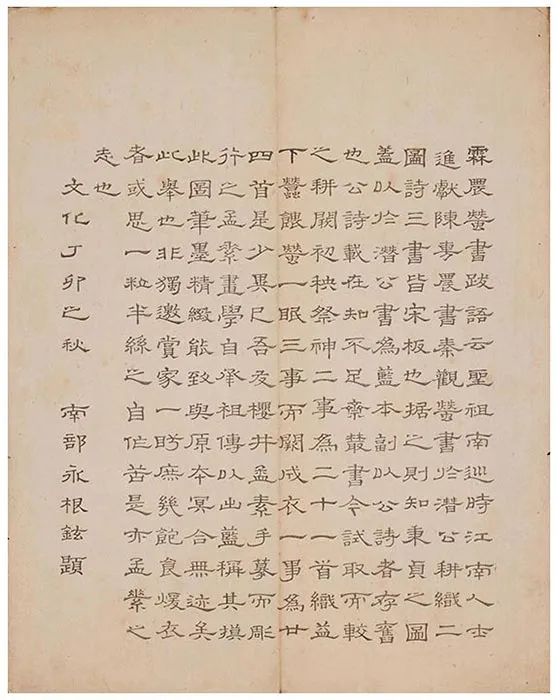 霖農蠶書跋語云聖祖南巡時江南人士
進獻陳旉農書秦觀蠶書於潛公耕織二
圖詩三書皆宋板也据之則知秉貞之圖
蓋以於潛公書為藍本副以公詩者存舊
也公詩載在知不足齋叢書今試取而較
之耕闕初秧祭神二事為二十一首織益
下蠶餵蠶一眠三事而闕成衣一事為廿
四首是少異已吾友櫻井孟素手摹而彫
行之孟素畫學自承祖傳以出藍稱其摸
此圖筆墨精緻能致與原本冥合無迹矣
此舉也非獨邀賞家一眄庶幾飽食煖衣
者或思一粒半絲之自作苦是亦孟素之
志也
文化丁卯之秋 南部永根鉉題